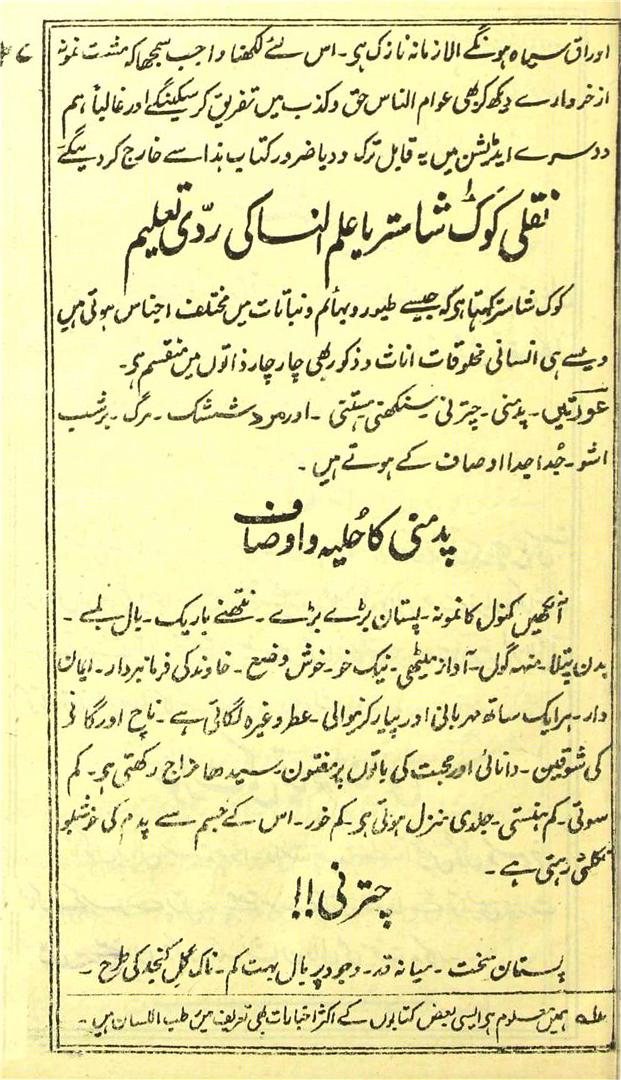 ۷
اوراق سیاہ ہونگے الا زمانہ نازک ہی۔ اس لئے لکھنا واجب سمجھا کہ مشت نمونہ
از خروارے دیکھ کر بھی عوام الناس حق و کذب میں تفریق کر سکینگے اور غالباً ہم
دوسرے ایڈیشن میں یہ قابل ترک ودیا ضرور کتاب ہذا سے خارج کر دینگے
نقلی کوک شاستر یا علم النسا کی ردّی تعلیم
کوک شاستر کہتا ہو کہ جیسے طیور و بہائم و نباتات میں مختلف اجناس ہوتی ہیں
ویسے ہی انسانی مخلوقات اناث و ذکور بھی چار چار ذاتوں میں منقسم ہی۔
عورتیں۔ پدمنی۔ چترنی۔ سنکھنی ہستنی۔ اور مرد ششک۔ مرگ۔ برشب
اشو۔ جُدا جدا اوصاف کے ہوتے ہیں۔
پدمنی کا حُلیہ و اوصاف
آنکھیں کنول کا نمونہ۔ پستان بڑے بڑے۔ نتھنے باریک۔ بال لمبے۔
بدن پتلا۔ منہہ گول۔ آواز میٹھی۔ نیک خو۔ خوش وضع۔ خاوند کی فرمانبردار۔ ایمان
دار۔ ہر ایک ساتھ مہربانی اور پیار کرنیوالی۔ عطر وغیرہ لگاتی ہے۔ ناچ اور گانے
کی شوقین۔ دانائی اور محبت کی باتوں پر مفتون۔ سیدھا مزاج رکھتی ہی۔ کم
سوتی۔ کم ہنستی۔ جلدی منزل ہوتی ہی۔ کم خور۔ اس کے جسم سے پدم کی خوشبو
نکلتی رہتی ہے۔
چترنی!!
پستان سخت۔ میانہ قد۔ وجود پر بال بہت کم۔ ناک گل کنجد کی طرح۔
ہمیں معلوم ہی ایسی بعض کتابوں کے اکثر اخبارات طبی تعریف میں رطب اللسان ہیں۔